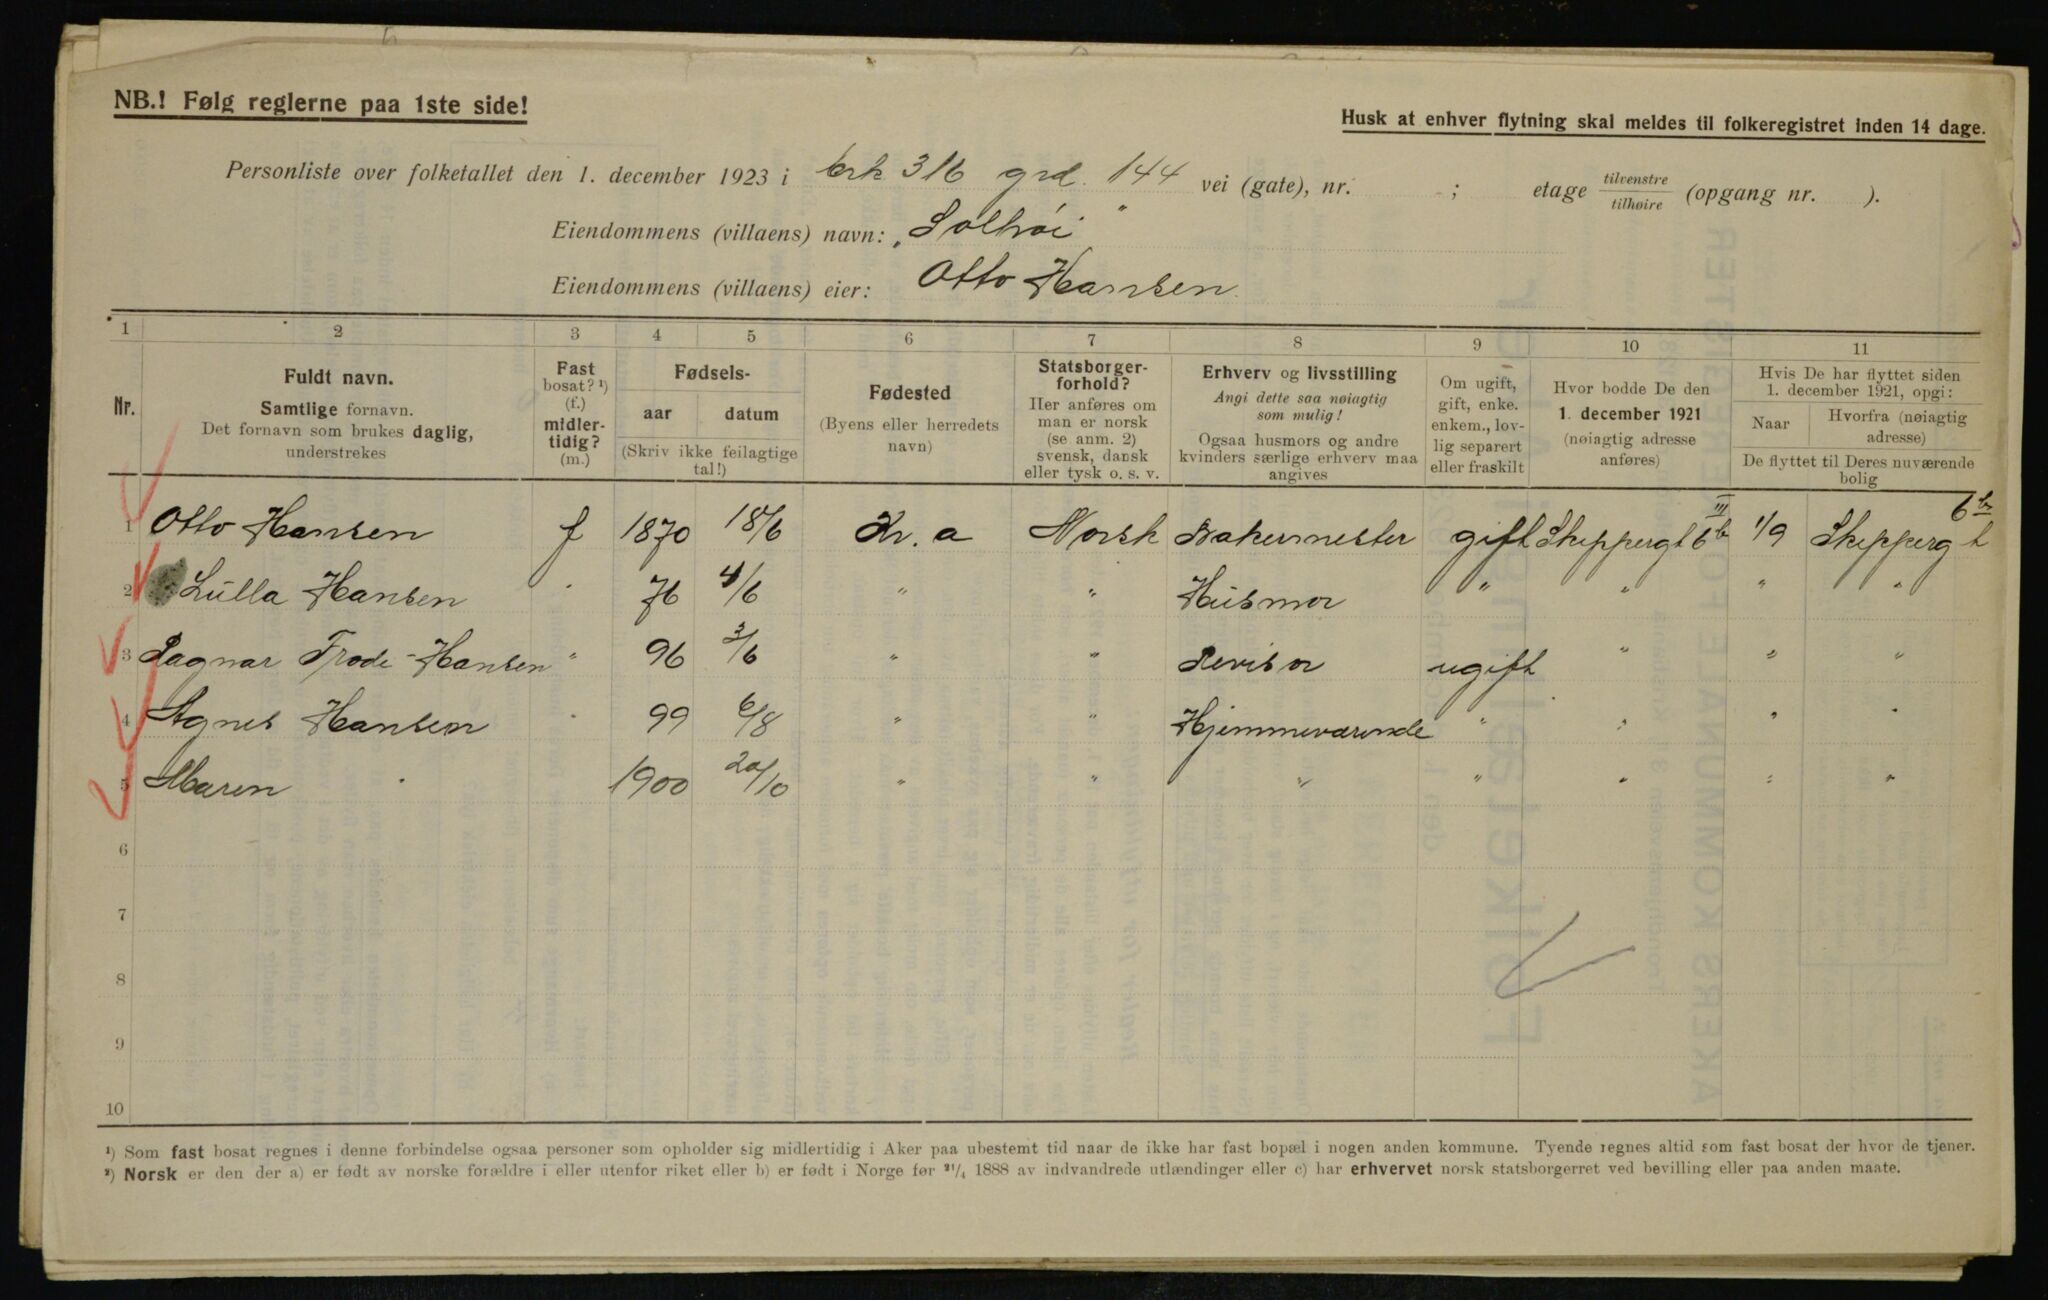 NB.! Følg reglerne paa 1ste side!
Husk at enhver flytning skal meldes til folkeregistret inden 14 dage.
Personliste over folketallet den 1. december 1923 i brk 316 grd. 144 vei (gate), nr. ; etage tilvenstre/tilhøire (opgang nr. ).
Eiendommens (villaens) navn: „Solhøi"
Eiendommens (villaens) eier: Otto Hansen.
1 2 3 4 5 6 7 8 9 10 11
Nr.
Fuldt navn.
Samtlige fornavn.
Det fornavn som brukes daglig,
understrekes
Fast
bosat? ¹)
(f.)
midler-
tidig?
(m.)
Fødsels-
aar datum
(Skriv ikke feilagtige
tal!)
Fødested
(Byens eller herredets
navn)
Statsborger-
forhold?
Her anføres om
man er norsk
(se anm. 2)
svensk, dansk
eller tysk o. s. v.
Erhverv og livsstilling
Angi dette saa nøiagtig
som mulig!
Ogsaa husmors og andre
kvinders særlige erhverv maa
angives
Om ugift,
gift, enke.
enkem., lov-
lig separert
eller fraskilt
Hvor bodde De den
1. december 1921
(nøiagtig adresse
anføres)
Hvis De har flyttet siden
1. december 1921, opgi:
Naar Hvorfra (nøiagtig
adresse)
De flyttet til Deres nuværende
bolig
1 Otto Hansen f 1870 18/6 Kr.a Norsk Bakermester gift Skippergt 6b III 1/9 Skipperg t 6b
2 Lulla Hansen " 76 4/6 " " Husmor " " " "
3 Ragnar Frode-Hansen " 96 3/6 " " Revisor ugift " " "
4 Agnes Hansen " 99 6/8 " " Hjemmeværende " " " "
5 Maren " 1900 20/10 " " " " " " "
6
7
8
9
10
¹) Som fast bosat regnes i denne forbindelse ogsaa personer som opholder sig midlertidig i Aker paa ubestemt tid naar de ikke har fast bopæl i nogen anden kommune. Tyende regnes altid som fast bosat der hvor de tjener.
²) Norsk er den der a) er født av norske forældre i eller utenfor riket eller b) er født i Norge før ²¹/₄ 1888 av indvandrede utlændinger eller c) har erhvervet norsk statsborgerret ved bevilling eller paa anden maate.